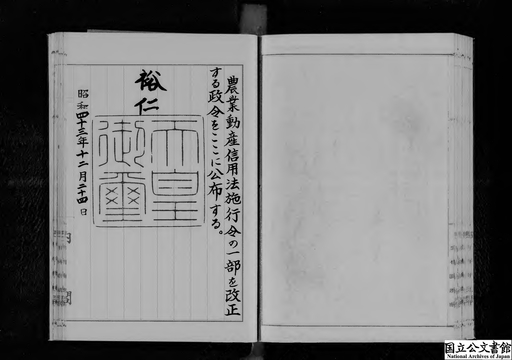 農業動産信用法施行令の一部を改正
する政令をここに公布する。
裕仁
天皇
御璽
昭和四十三年十二月二十四日
国立公文書館
National Archives of Japan